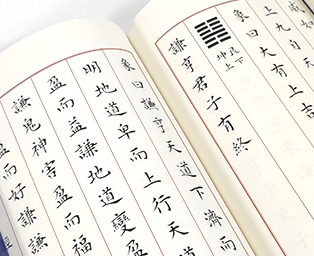 上九自天
象曰大有上吉
艮下
坤上
謙亨君子有終
彖曰謙亨天道下濟而
明地道卑而上行天
盈而益謙地道變盈而
謙鬼神害盈而福
盈而好謙謙